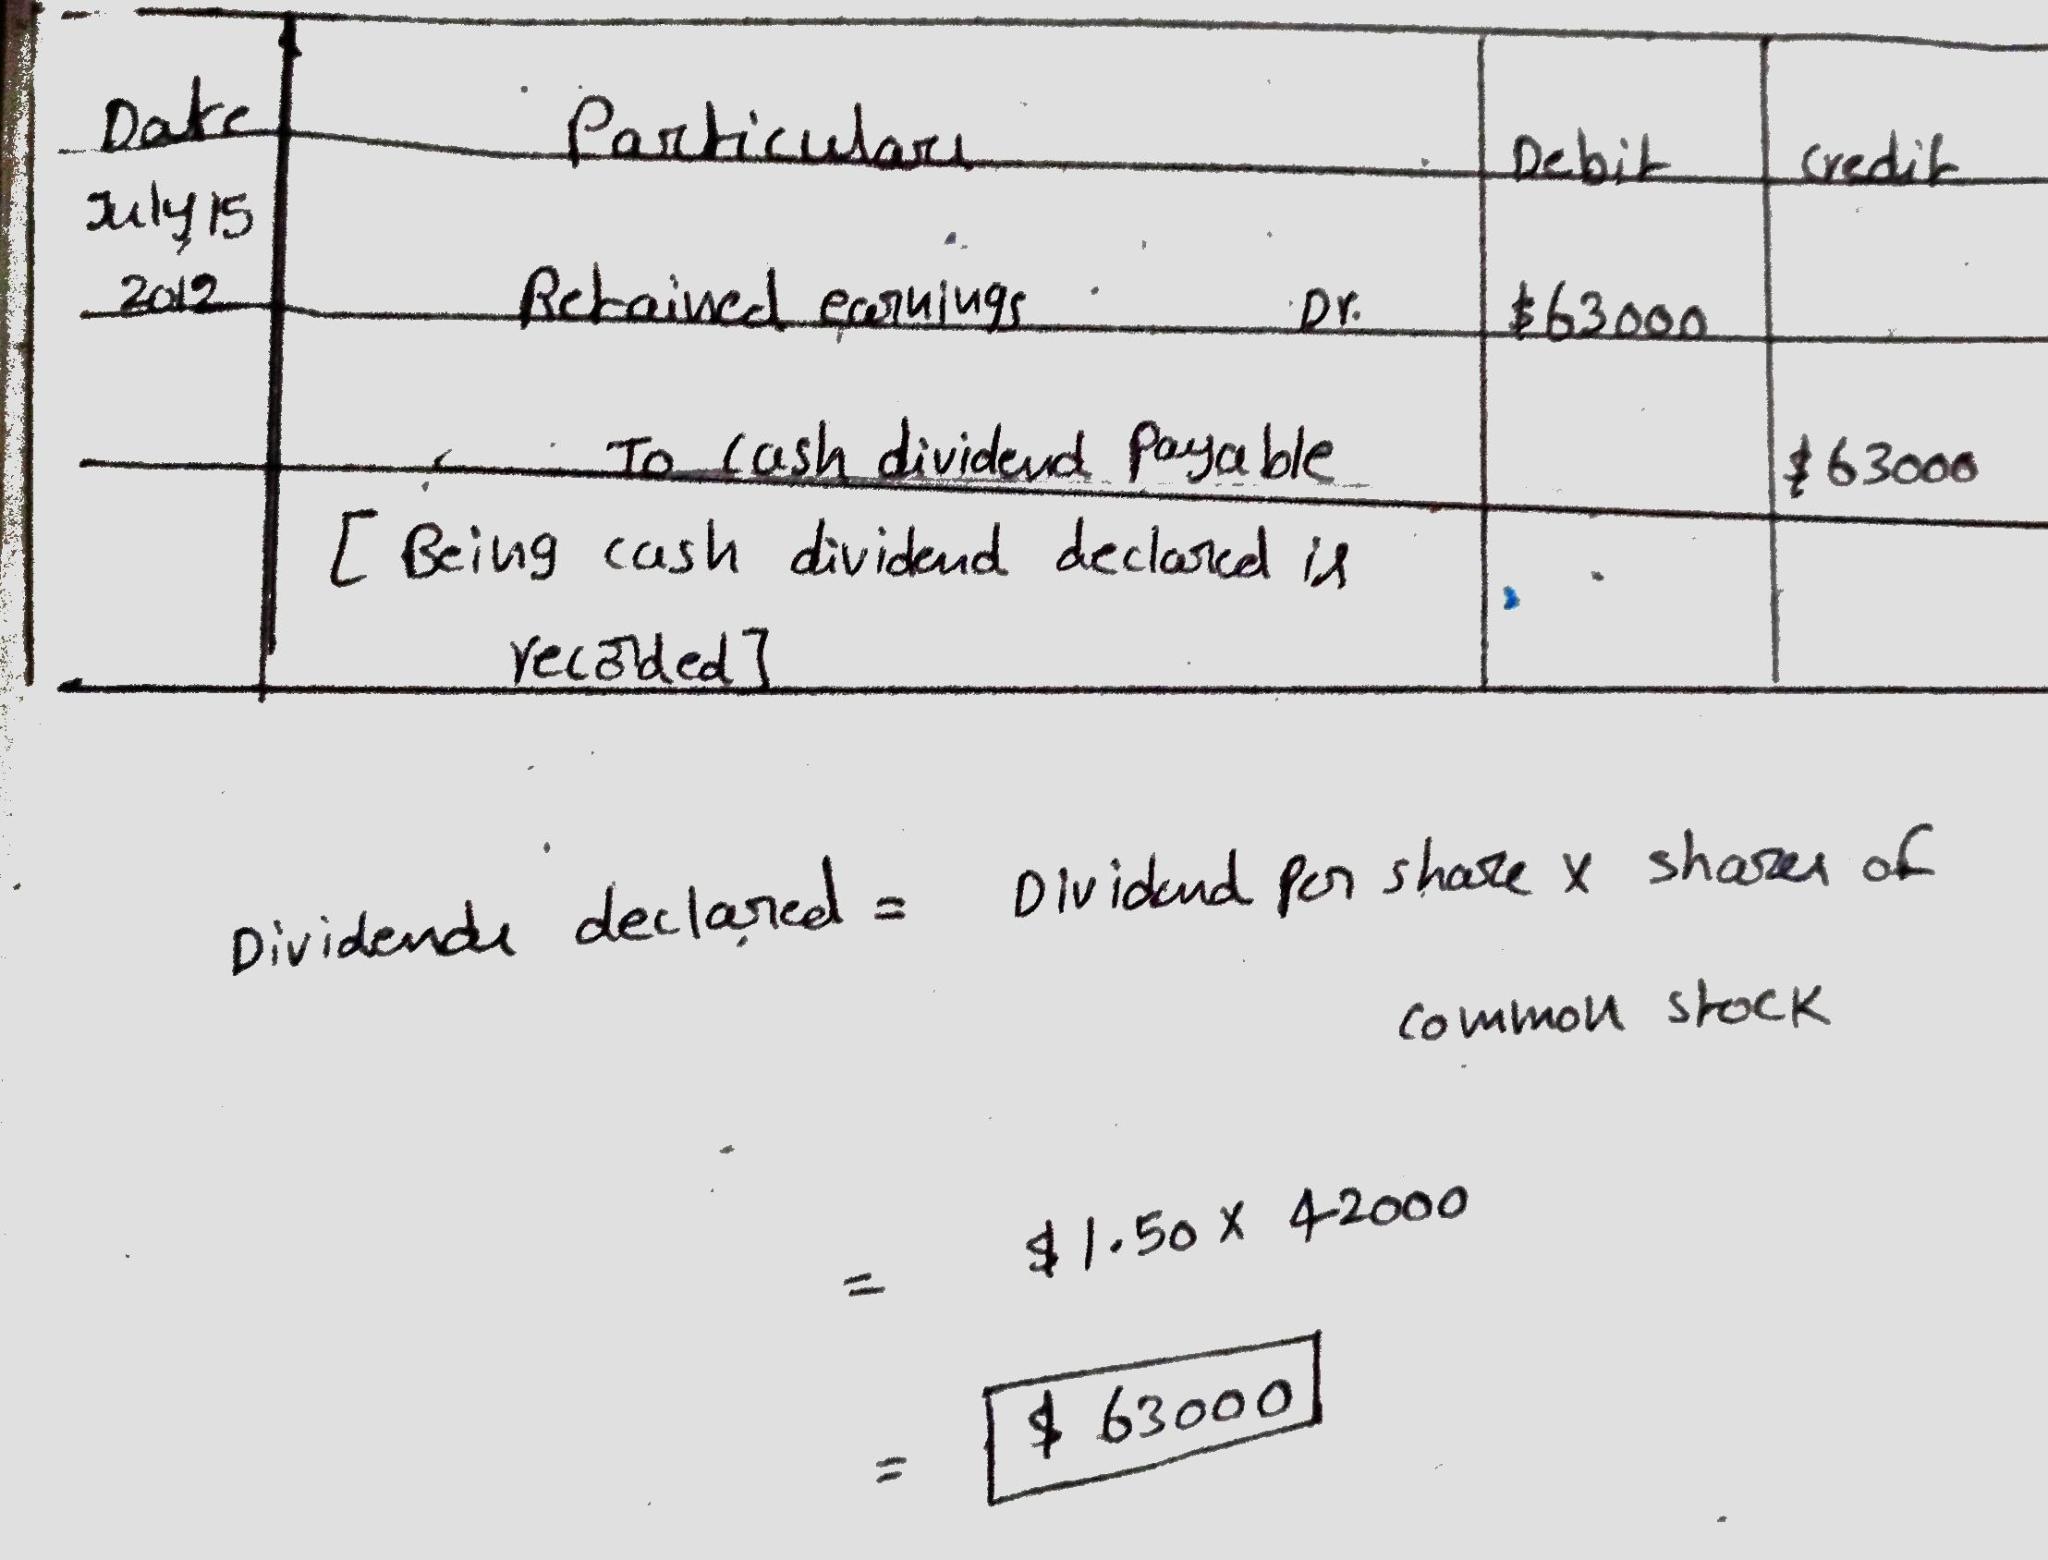 Date Particulars Debit Credit
July 15
2012 Retained earnings Dr. $63000
To cash dividend Payable $63000
[Being cash dividend declared is
recorded]
Dividends declared = Dividend per share x shares of
common stock
= $1.50 x 42000
= $ 63000